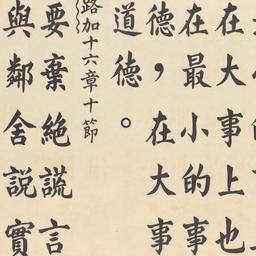 在大事上也
在最小的事
德，在大事
道德。
路加十六章十節
要棄絕謊言
與鄰舍說實